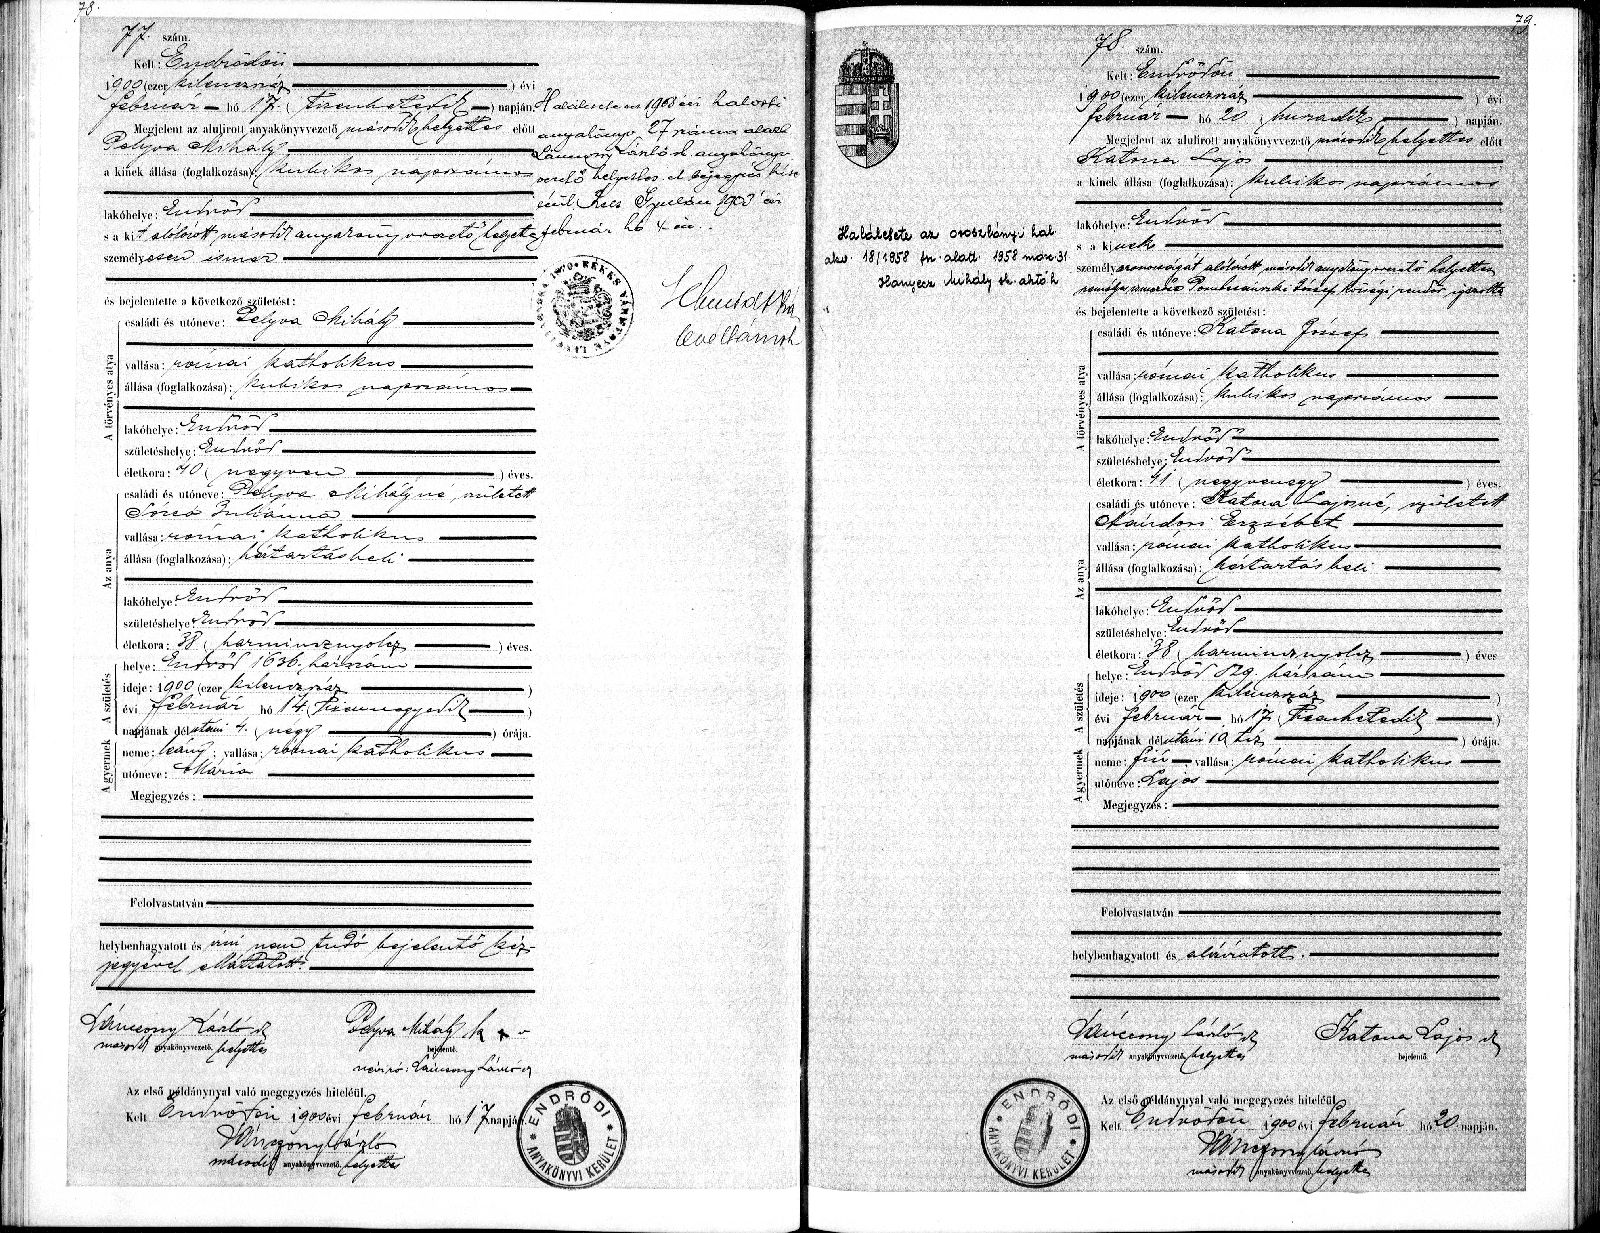 78.
77. szám.
Kelt: Endrődön
1900 (ezer kilenczszáz ) évi
február hó 17. ( tizenhetedik ) napján.
Megjelent az alulirott anyakönyvvezető második helyettes előtt
Pelyva Mihály
a kinek állása (foglalkozása): kubikos napszámos
lakóhelye: Endrőd
s a kit alólirott második anyakönyvvezető helyettes
személyesen ismer
és bejelentette a következő születést:
A törvényes atya
családi és utóneve: Pelyva Mihály
vallása: római katholikus
állása (foglalkozása): kubikos napszámos
lakóhelye: Endrőd
születéshelye: Endrőd
életkora: 40 ( negyven ) éves.
Az anya
családi és utóneve: Pelyva Mihályné, született
Juliánna
vallása: római katholikus
állása (foglalkozása): háztartásbeli
lakóhelye: Endrőd
születéshelye: Endrőd
életkora: 38 ( harmincznyolcz ) éves.
A születés
helye: Endrőd 1636. házszám
ideje: 1900 (ezer kilenczszáz )
évi február hó 14. ( tizennegyedik )
napjának délutáni 4. ( négy ) órája.
A gyermek
neme: leány; vallása: római katholikus
utóneve: Mária
Megjegyzés:
Felolvastatván
helybenhagyatott és irni nem tudó bejelentő kéz-
jegyével elláttatott.
Lánczony László sk
második anyakönyvvezető. helyettes
Pelyva Mihály k x v
bejelentő.
névíró: Lánczony László sk
Az első példánynyal való megegyezés hiteléül.
Kelt Endrődön 1900 évi február hó 17 napján.
Lánczony László
második anyakönyvvezető. helyettes
ENDRŐDI ANYAKÖNYVI KERÜLET
Halálesete az 1903 évi halotti
anyakönyv 27 száma alatt
Lánczony László sk anyakönyv
vezető helyettes. A bejegyzés hite
léül Kelt Gyulán 1903 évi
február hó 4 én.
BÉKÉS VÁRMEGYE
79.
78 szám.
Kelt: Endrődön
1900 (ezer kilenczszáz ) évi
február hó 20 ( huszadik ) napján.
Megjelent az alulirott anyakönyvvezető második helyettes előtt
Katona Lajos
a kinek állása (foglalkozása): kubikos napszámos
lakóhelye: Endrőd
s a kinek
személyazonosságát alólirott második anyakönyvvezető helyettes
József községi rendőr igazolta
és bejelentette a következő születést:
A törvényes atya
családi és utóneve: Katona József
vallása: római katholikus
állása (foglalkozása): kubikos napszámos
lakóhelye: Endrőd
születéshelye: Endrőd
életkora: 41 ( negyvenegy ) éves.
Az anya
családi és utóneve: Katona Lajosné, született
Nándori Erzsébet
vallása: római katholikus
állása (foglalkozása): háztartásbeli
lakóhelye: Endrőd
születéshelye: Endrőd
életkora: 38 ( harmincznyolcz ) éves
A születés
helye: Endrőd házszám
ideje: 1900 (ezer kilenczszáz )
évi február hó 17. ( tizenhetedik )
napjának délutáni 10 tíz ) órája.
A gyermek
neme: fiú; vallása: római katholikus
utóneve: Lajos
Megjegyzés:
Felolvastatván
helybenhagyatott és aláiratott.
Lánczony László sk
második anyakönyvvezető. helyettes
Katona Lajos sk
bejelentő.
Az első példánynyal való megegyezés hiteléül.
Kelt Endrődön 1900 évi február hó 20 napján.
Lánczony László
második anyakönyvvezető. helyettes
ENDRŐDI ANYAKÖNYVI KERÜLET
Halálesete az oroszlányi hal.
akv. 18/1958 fsz. alatt 1958 márc 31
Hanyecz Mihály sk. aktóh